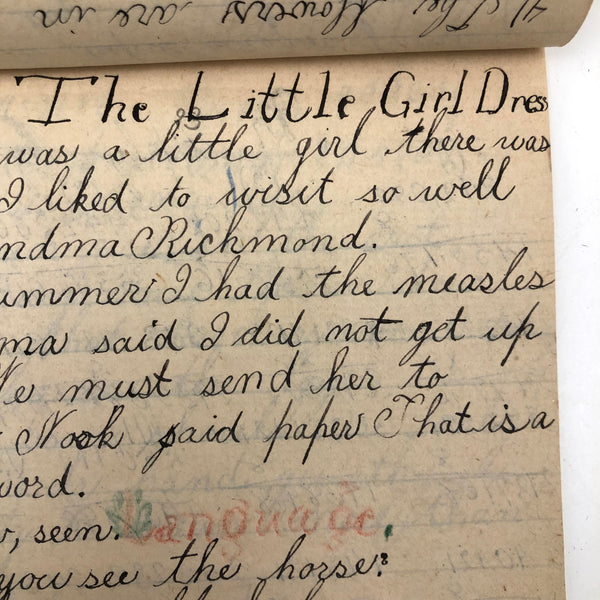 The flowers are in
The Little Girl Dress
was a little girl there was
I liked to visit so well
ndma Richmond.
ummer I had the measles
ma said I did not get up
We must send her to
Nook said paper That is a
word.
, seen. Language.
you see the horse?